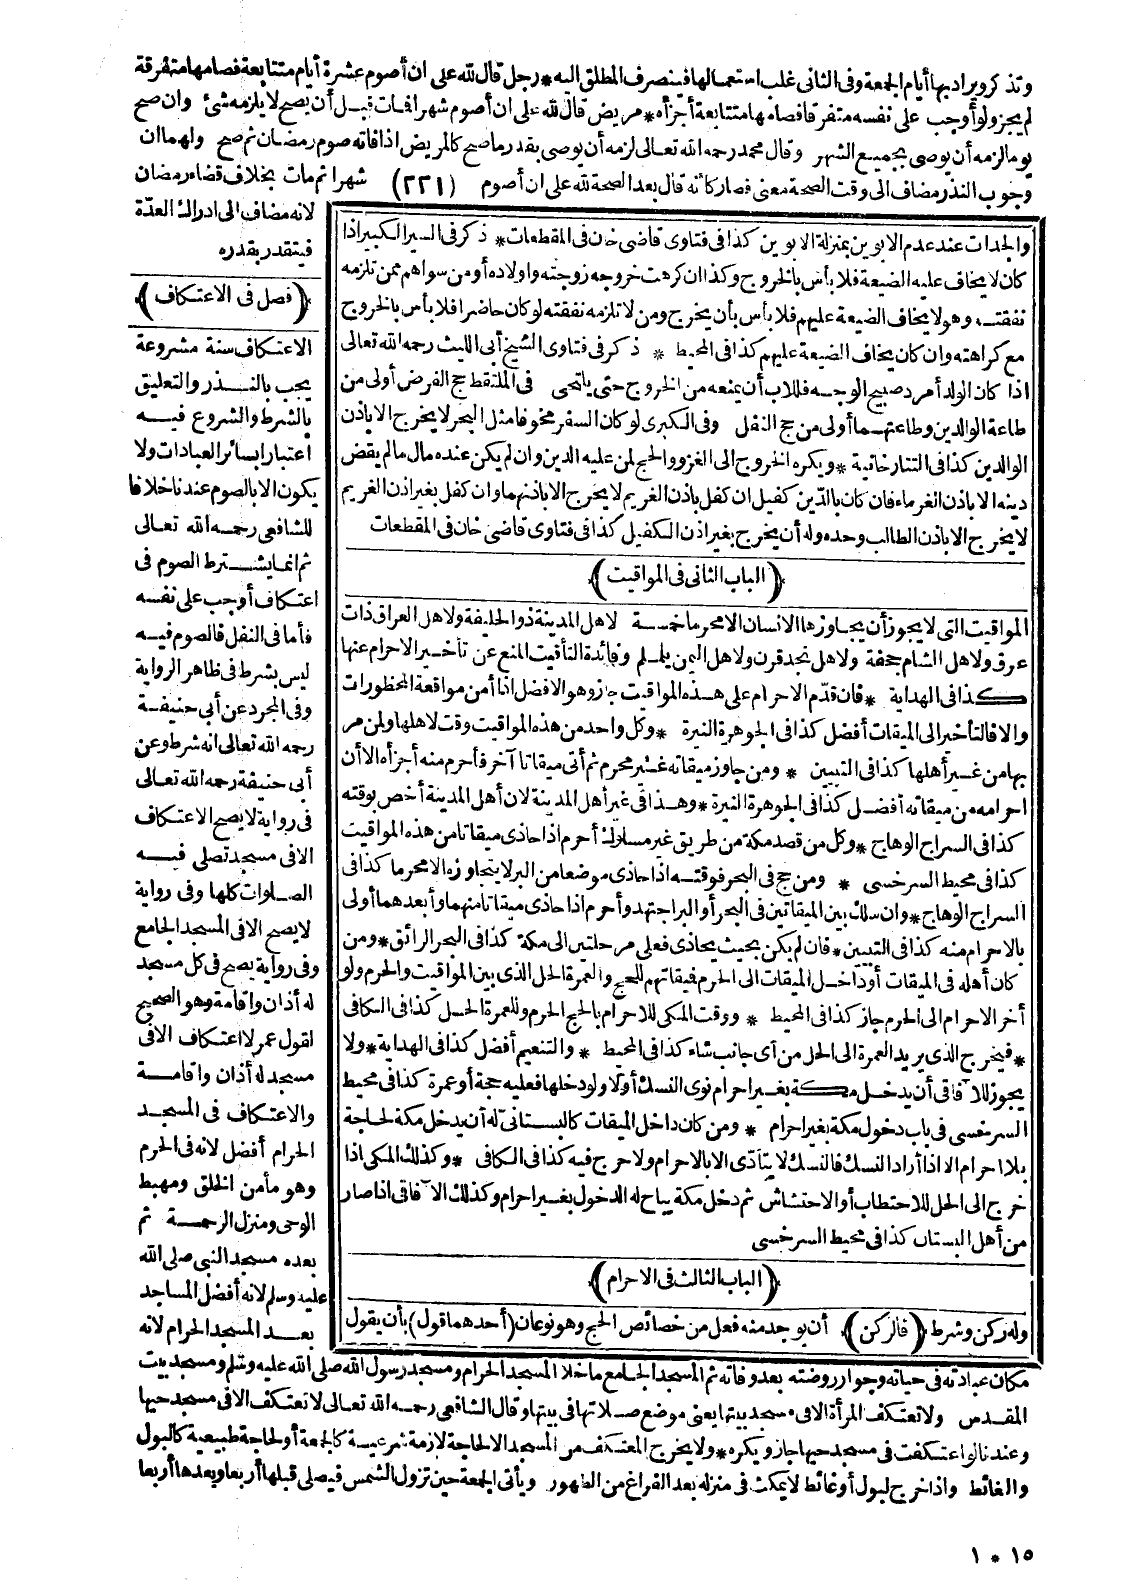 وتذكر ويراد بها أيام الجمعة وفى الثانى غلب استعمالها فينصرف المطلق اليه * رجل قال لله على ان أصوم عشرة أيام متتابعة فصامها متفرقة
لم يجز ولو أوجب على نفسه متفرقا فصامها متتابعة أجزأه * مريض قال لله على ان أصوم شهرا فمات قبل أن يصح لا يلزمه شئ وان صح
يوما لزمه أن يوصى بجميع الشهر وقال محمد رحمه الله تعالى لزمه أن يوصى بقدر ما صح كالمريض اذا فاته صوم رمضان ثم صح ولهما ان
وجوب النذر مضاف الى وقت الصحة معنى فصار كأنه قال بعد الصحة لله على ان أصوم (٢٢١) شهرا ثم مات بخلاف قضاء رمضان
لانه مضاف الى ادراك العدّة
فيتقدر بقدره
(فصل فى الاعتكاف)
الاعتكاف سنة مشروعة
يجب بالنذر والتعليق
بالشرط والشروع فيه
اعتبارا بسائر العبادات ولا
يكون الا بالصوم عندنا خلافا
للشافعى رحمه الله تعالى
ثم انما يشترط الصوم فى
اعتكاف أوجب على نفسه
فأما فى النفل فالصوم فيه
ليس بشرط فى ظاهر الرواية
وفى المجرد عن أبى حنيفة
رحمه الله تعالى انه شرط وعن
أبى حنيفة رحمه الله تعالى
فى رواية لا يصح الاعتكاف
الا فى مسجد تصلى فيه
الصلوات كلها وفى رواية
لا يصح الا فى المسجد الجامع
وفى رواية يصح فى كل مسجد
له أذان واقامة وهو الصحيح
لقول عمر لا اعتكاف الا فى
مسجد له أذان واقامة
والاعتكاف فى المسجد
الحرام أفضل لانه فى الحرم
وهو مأمن الخلق ومهبط
الوحى ومنزل الرحمة ثم
بعده مسجد النبى صلى الله
عليه وسلم لانه أفضل المساجد
بعد المسجد الحرام لانه
والجدات عند عدم الابوين بمنزلة الابوين كذا فى فتاوى قاضى خان فى المقطعات * ذكر فى السير الكبير اذا
كان لا يخاف عليه الضيعة فلا بأس بالخروج وكذا ان كرهت خروجه زوجته وأولاده أو من سواهم ممن تلزمه
نفقته وهو لا يخاف الضيعة عليهم فلا بأس بأن يخرج ومن لا تلزمه نفقته لو كان حاضرا فلا بأس بالخروج
مع كراهته وان كان يخاف الضيعة عليهم كذا فى المحيط * ذكر فى فتاوى الشيخ أبى الليث رحمه الله تعالى
اذا كان الولد أمرد صبيح الوجه فللاب أن يمنعه من الخروج حتى يلتحى فى الملتقط حج الفرض أولى من
طاعة الوالدين وطاعتهما أولى من حج النفل وفى الكبرى لو كان السفر مخوفا مثل البحر لا يخرج الا باذن
الوالدين كذا فى التتارخانية * ويكره الخروج الى الغزو والحج لمن عليه الدين وان لم يكن عنده مال ما لم يقض
دينه الا باذن الغرماء فان كان بالدّين كفيل ان كفل باذن الغريم لا يخرج الا باذنهما وان كفل بغير اذن الغريم
لا يخرج الا باذن الطالب وحده وله أن يخرج بغير اذن الكفيل كذا فى فتاوى قاضى خان فى المقطعات
(الباب الثانى فى المواقيت)
المواقيت التى لا يجوز أن يجاوزها الانسان الا محرما خمسة لاهل المدينة ذو الحليفة ولاهل العراق ذات
عرق ولاهل الشام جحفة ولاهل نجد قرن ولاهل اليمن يلملم وفائدة التأقيت المنع عن تأخير الاحرام عنها
كذا فى الهداية * فان قدّم الاحرام على هذه المواقيت جاز وهو الافضل اذا أمن مواقعة المحظورات
والا فالتأخير الى الميقات أفضل كذا فى الجوهرة النيرة * وكل واحد من هذه المواقيت وقت لاهلها ولمن مر
بها من غير أهلها كذا فى التبيين * ومن جاوز ميقاته غير محرم ثم أتى ميقاتا آخر فأحرم منه أجزأه الا أن
احرامه من ميقاته أفضل كذا فى الجوهرة النيرة * وهذا فى غير أهل المدينة لان أهل المدينة أخص بوقته
كذا فى السراج الوهاج * وكل من قصد مكة من طريق غير مسلوك أحرم اذا حاذى ميقاتا من هذه المواقيت
كذا فى محيط السرخسى * ومن حج فى البحر فوقته اذا حاذى موضعا من البر لا يتجاوزه الا محرما كذا فى
السراج الوهاج * وان سلك بين الميقاتين فى البحر أو البر اجتهد وأحرم اذا حاذى ميقاتا منهما وأبعدهما أولى
بالاحرام منه كذا فى التبيين * فان لم يكن بحيث يحاذى فعلى مرحلتين الى مكة كذا فى البحر الرائق * ومن
كان أهله فى الميقات أو داخل الميقات الى الحرم فميقاتهم للحج والعمرة الحل الذى بين المواقيت والحرم ولو
أخر الاحرام الى الحرم جاز كذا فى المحيط * ووقت المكى للاحرام بالحج الحرم وللعمرة الحل كذا فى الكافى
* فيخرج الذى يريد العمرة الى الحل من أى جانب شاء كذا فى المحيط * والتنعيم أفضل كذا فى الهداية * ولا
يجوز للآفاقى أن يدخل مكة بغير احرام نوى النسك أولا ولو دخلها فعليه حجة أو عمرة كذا فى محيط
السرخسى فى باب دخول مكة بغير احرام * ومن كان داخل الميقات كالبستانى له أن يدخل مكة لحاجة
بلا احرام الا اذا أراد النسك فالنسك لا يتأدى الا بالاحرام ولا حرج فيه كذا فى الكافى * وكذلك المكى اذا
خرج الى الحل للاحتطاب أو الاحتشاش ثم دخل مكة يباح له الدخول بغير احرام وكذلك الآفاقى اذا صار
من أهل البستان كذا فى محيط السرخسى
(الباب الثالث فى الاحرام)
وله ركن وشرط (فالركن) أن يوجد منه فعل من خصائص الحج وهو نوعان (أحدهما قول) بأن يقول
مكان عبادته فى حياته وجوار روضته بعد وفاته ثم المسجد الجامع ما خلا المسجد الحرام ومسجد رسول الله صلى الله عليه وسلم ومسجد بيت
المقدس ولا تعتكف المرأة الا فى مسجد بيتها يعنى موضع صلاتها فى بيتها وقال الشافعى رحمه الله تعالى لا تعتكف الا فى مسجد حيها
وعندنا لو اعتكفت فى مسجد حيها جاز ويكره * ولا يخرج المعتكف من المسجد الا لحاجة لازمة شرعية كالجمعة أو لحاجة طبيعية كالبول
والغائط واذا خرج لبول أو غائط لا يمكث فى منزله بعد الفراغ من الطهور ويأتى الجمعة حين تزول الشمس فيصلى قبلها أربعا وبعدها أربعا
١٠١٥